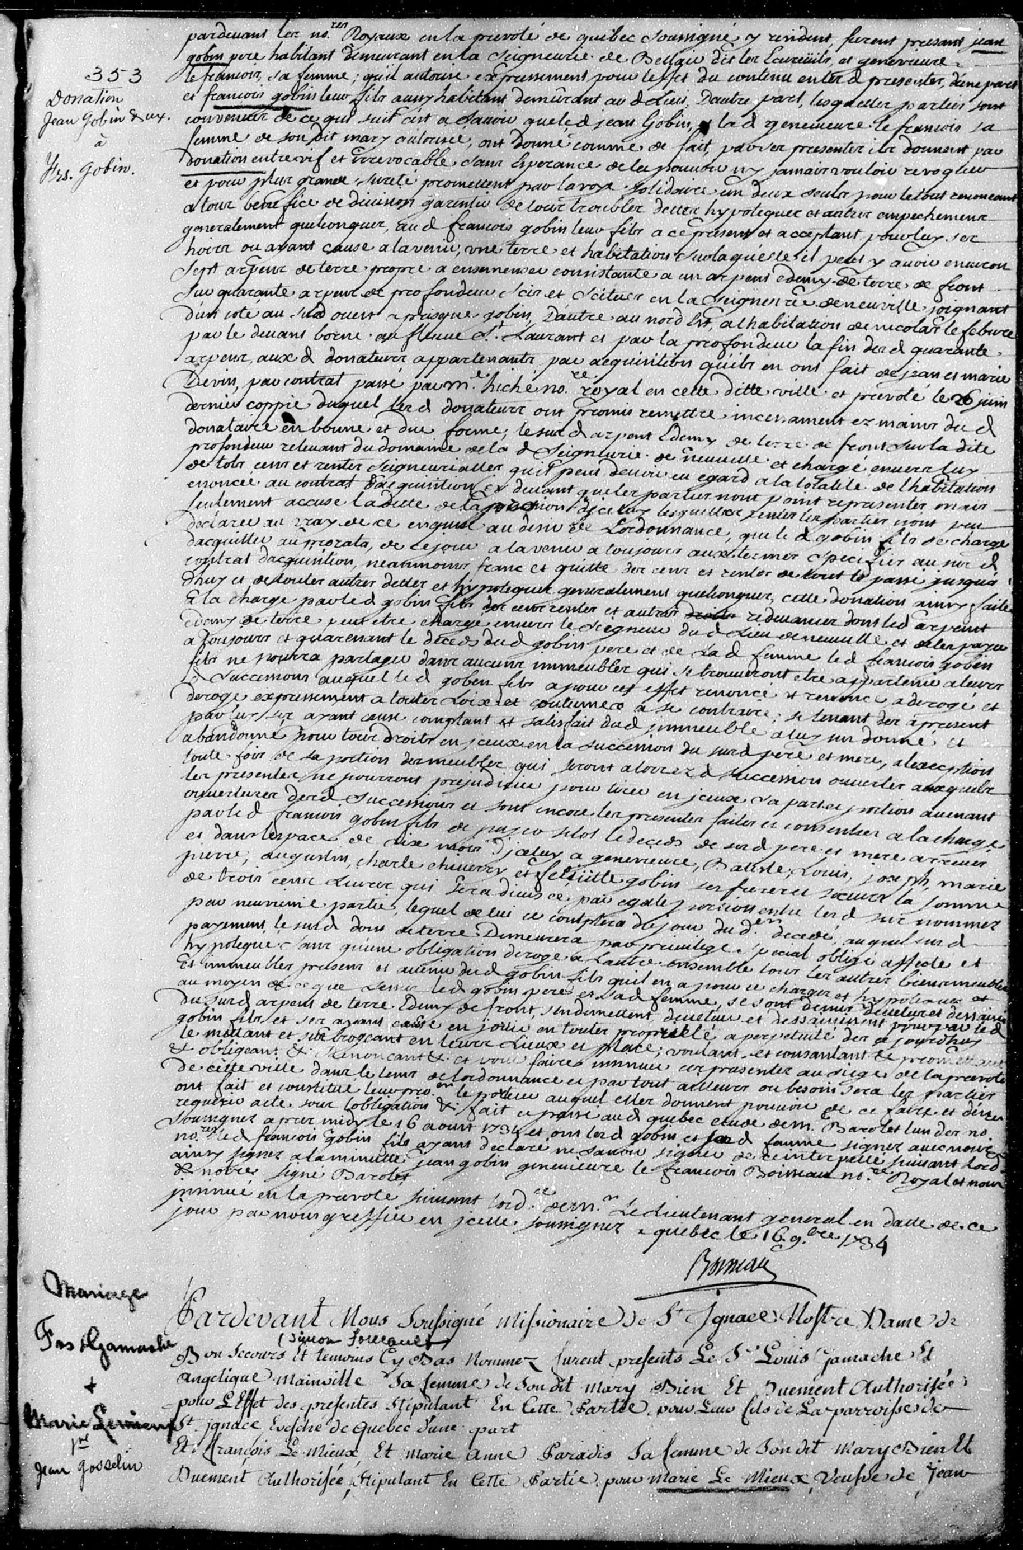 353
Donation
Jean Gobin & ux.
à
Frs. Gobin.
pardevant les no.res Royaux en la prevoté de quebec soussigné y residens furent presens jean
gobin pere habitant demeurant en la Seigneurie de Belair dit les Ecureuils, et genevieve
le francois, sa femme, qu'il autorise expressement pour l'effet du contenu entes d presentes, d'une part
et francois gobin leur fils aussy habitant demeurant au d Lieu, Dautre part, lesquelles parties sont
convenues de ce qui suit cest a Scavoir que le d jean Gobin, et la d genevieve le francois sa
femme de son dit mary autorisée, ont donné comme de fait, par ses presentes ils donnent par
donation entrevif et irrevocable sans Esperance de la pouvoir ny jamais vouloir revoquer
et pour plus grande sureté promettent par la voye solidaire un deux seuls pour le tout renonceant
a tous benefice de division garentir de tous troubles dettes hypoteques et autres empechemens
generalement quelconques, au d francois gobin leur fils a ce present et acceptant pour luy ses
hoirs ou ayant cause a lavenir, une terre et habitation sur laquelle il peut y avoir environ
Sept arpens de terre propre a ensemencer consistante a un arpent & demy de terre de front
Sur quarante arpens de profondeur Scis et Scitués en la Seigneurie de neuville joignant
dun coté au Sud ouest a gobin, Dautre au nord Est, a lhabitation de nicolas le febvre
par le devant borné au fleuve St Laurant et par la profondeur la fin des d quarante
arpens, aux d donateurs appartenants par acquisition quils en ont fait de jean et marie
Devin, par contrat passé par m.e hiché no.re royal en cette ditte ville et prevoté le 26 juin
dernier coppie duquel les d donateurs ont promis remettre incessament ez mains du d
donataire en bonne et due forme; le sus d arpent & demy de terre de front sur la dite
profondeur relevant du domaine de la d Seigneurie de Neuville et chargé envers luy
de tels cens et rentes Seigneurialles qu'il peut devoir eu egard a la totalité de lhabitation
enoncée au contrat d'acquisition
declarer au vray de ce enquis au desir de Lordonnance, que le d gobin fils se charge
dacquitter au prorata, de ce jour a lavenir a toujours aux termes Specifiés au sus d
contrat dacquisition, neanmoins franc et quitte des cens et rentes de tout le passé jusqua
dhuy et de toutes autres dettes et hypoteques generalement quelconques, cette donation ainsy faite
a la charge par le d gobin fils des cens rentes et autres redevances dont led arpent
& demy de terre peut etre chargé envers le Seigneur du d Lieu de neuville et de les payer
a toujours et quavenant le deceds du d gobin pere et de La d femme le d francois gobin
fils ne pourra partager dans aucuns immeubles qui se trouveront etre appartenir a leurs
d Successions auquel le d gobin fils a pour cet effet renoncé et renonce a derogé et
deroge expressement a toutes Loix et coutumes a se contraire; se tenant des a present
par luy ses ayant cause comptant et satisfait du d immeuble a luy donné et
abandonné pour tous droits en iceux en la succession du sus d pere et mere, a lexception
toute fois de sa portion des meubles qui seront alors ez d successions ouvertes auxquels
les presentes ne pourront prejudicier pour avoir en iceux sa part et portion avenant
ouvertures des d Successions et sont encore les presentes faites et consenties a la charge
par le d francois gobin fils de payer sitot le deceds de ses d pere et mere arrivés
et dans lespace de six mois d'iceluy a genevieve, Batiste, Louis, joseph, marie
pierre, augustin, charle et felicitte gobin ses freres et soeurs la somme
de trois cens Livres qui sera divisée par egale portion entre les d sus nommes
payement, le susd dons de terre Demeurera par privilege special obligé affecté et
hypotequé sans qu'une obligation deroge a Lautre ensemble tous les autres biens meubles
Et immeubles presens et avenir du d gobin fils
au moyen de ce que dessus le d gobin pere et la d femme, se sont demis devetus et dessaisis
du sus d arpens de terre & demy de front
gobin fils et ses ayans cause en jouir en toutes proprieté a perpetuité des ce jourdhuy
le mettant et subrogeant en leurs Lieux et place; voulant, et consantant & promettant
& obligeant & Renoncant & et pour faire insinuer ces presentes au siege de la prevoté
de cette ville dans le tems de lordonnance et partout ailleurs ou besoin sera les parties
ont fait et constitué leur pro.on le porteur auquel elles donnent pouvoir de ce faire et den
requerir acte sous lobligation & fait et passé aud quebec etude de m. Barolet lun des no.
soussignez apres midy le 16 aoust 1734 et ont les d gobin et sa d femme signez avec nous
no.res le d francois gobin fils ayans declaré ne scavoir signer de ce interpellé suivant lord.
ainsy signez a la minutte jean gobin genevieve le francois Boisseau no.re Royal et nous
& notre signé Barolet
insinué en la prevoté suivant lord.ce de m.r Le Lieutenant general en datte de ce
jour par nous greffier en jcelle soussignez a quebec le 16 9.bre 1734
Boisseau
Mariage
Frs Gamache
+
Marie Lemieux
1er
Jean Gosselin
Pardevant Nous Soussigné Missionaire de St Ignace Nostre Dame de
(Simon Foucault)
Bon Secours Et temoins Cy Bas Nommez furent presents Le Sr Louis gamache Et
angélique Mainville Sa femme de Son dit Mary Bien Et Duement Authorisée
pour L'effet des presentes Stipulant En Cette Partie pour Leur fils de La parroisse de
St ignace Evesché de Quebec d'une part
Et françois Le Mieux Et Marie Anne Paradis Sa femme de Son dit Mary Bien Et
Duement Authorisée, Stipulant En Cette Partie pour Marie Le Mieux, Veufve de Jean